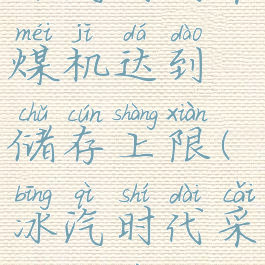 méi jī dá dào
煤机达到
chǔ cún shàng xiàn
储存上限(
bīng qì shí dài cǎi
冰汽时代采